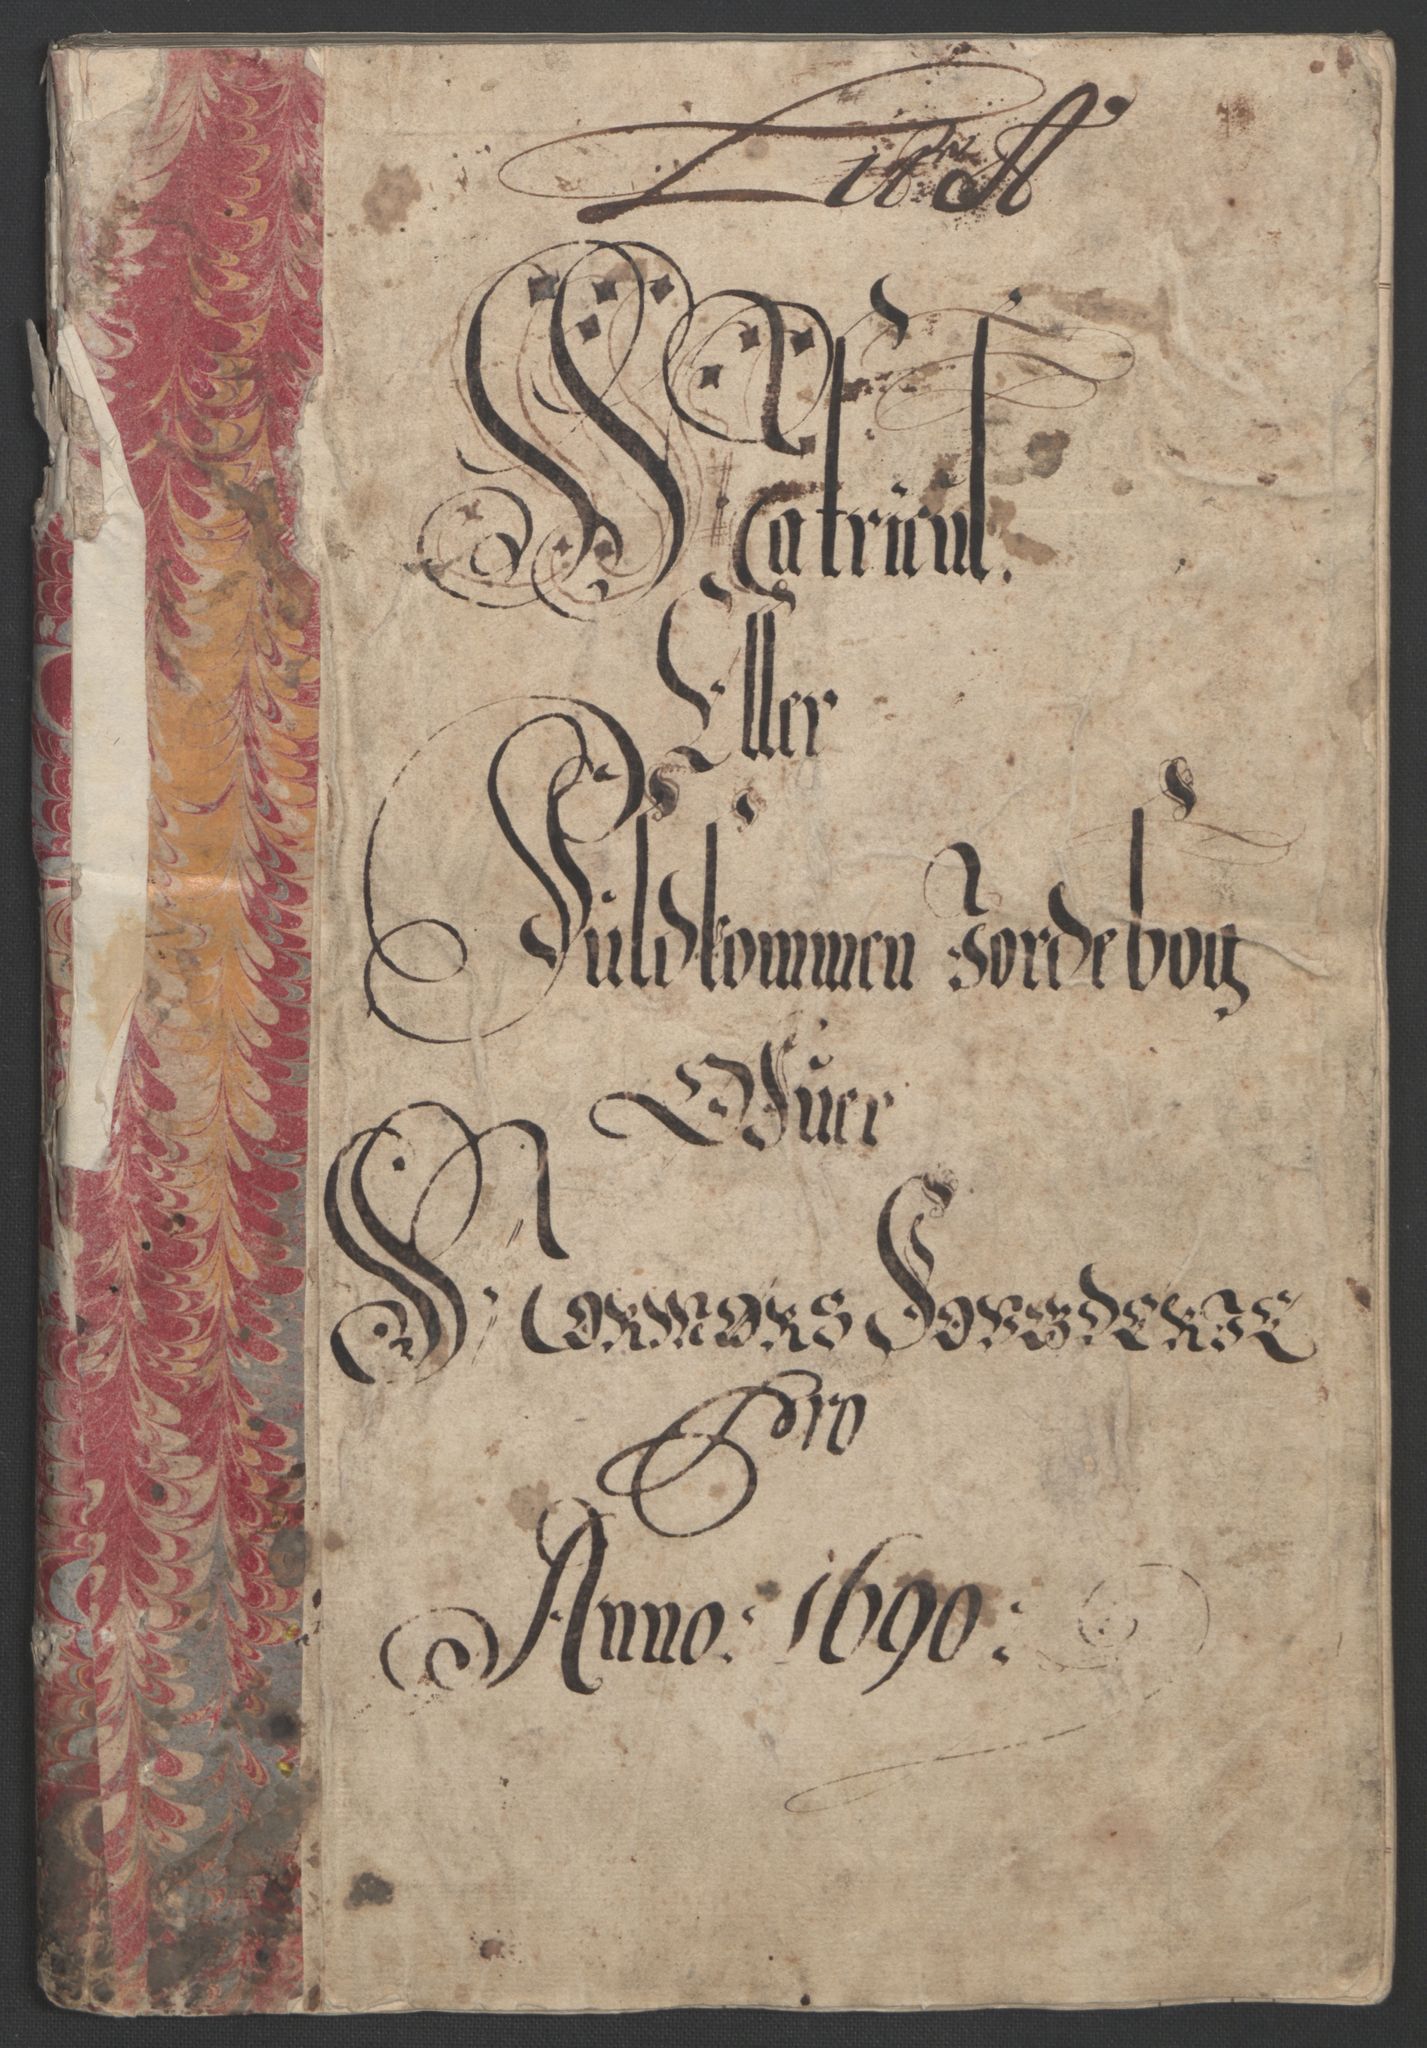 Litr A
Matricul.
Eller
Fuldkommen Jordebog
Ofuer
Normørs Fougderie
Pro
Anno: 1690: